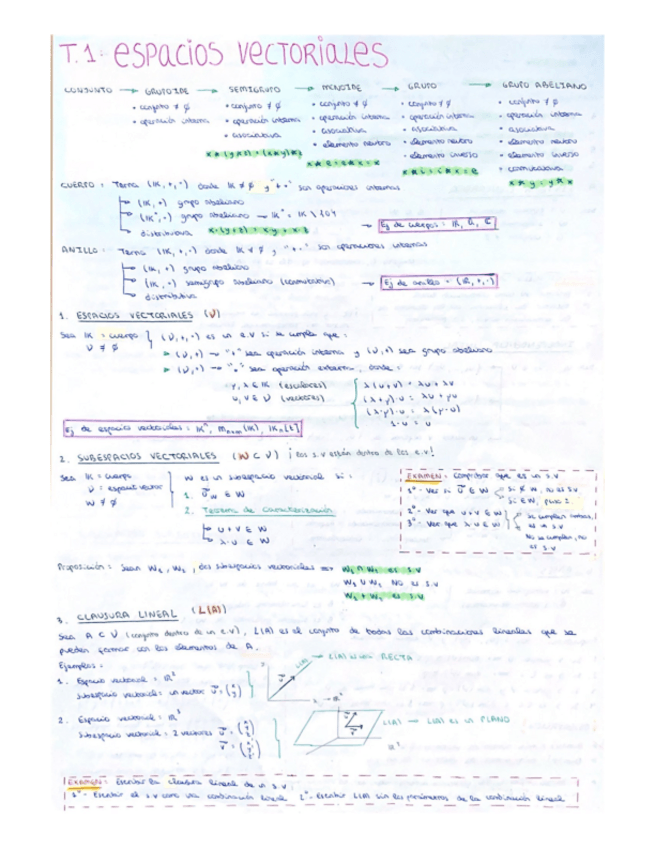 T.1. ESPACIOS VECTORIALES
CONJUNTO → GRUPOIDE → SEMIGRUPO → MONOIDE → GRUPO → GRUPO ABELIANO
• conjunto ≠ ∅ • conjunto ≠ ∅ • conjunto ≠ ∅ • conjunto ≠ ∅ • conjunto ≠ ∅
• operación interna • operación interna • operación interna • operación interna • operación interna
• asociativa • asociativa • asociativa • asociativa
• elemento neutro • elemento neutro • elemento neutro
• elemento inverso • elemento inverso
• conmutativa
x * y = y * x
CUERPO: Terna (IK, +, ·) donde IK ≠ ∅ y "+ ·" son operaciones internas
(IK, +) grupo abeliano
(IK*, ·) grupo abeliano → IK* = IK \ {0}
distributiva
Ej de cuerpos: IR, Q, C
ANILLO: Terna (IK, +, ·) donde IK ≠ ∅ y "+, ·" son operaciones internas
(IK, +) grupo abeliano
(IK, ·) semigrupo abeliano (conmutativo)
distributiva
Ej de anillo = (IR, +, ·)
1. ESPACIOS VECTORIALES (V)
Sea IK = cuerpo } (V, +, ·) es un e.v si se cumple que:
V ≠ ∅
(V, +) → "+" sea operación interna y (V, +) sea grupo abeliano
(V, ·) → "·" sea operación externa, donde:
(escalares) λ(u+v) = λu + λv
u, v ∈ V (vectores)
1·u = u
Ej de espacios vectoriales:
2. SUBESPACIOS VECTORIALES (W ⊂ V) ¡ Los s.v están dentro de los e.v!
Sea IK = cuerpo
V = espacio vector
W ≠ ∅
W es un subespacio vectorial si:
1.
2. Teorema de Caracterización
u + v ∈ W
λ · u ∈ W
EXAMEN: Comprobar que es un s.v
1º- Ver si
2º- Ver que u+v ∈ W
3º- Ver que λ·u ∈ W
No se cumplen, no
es s.v
Proposición: Sean W₁, W₂, dos subespacios vectoriales → W₁ ∩ W₂ es s.v
W₁ ∪ W₂ NO es s.v
W₁ + W₂ es s.v
3. CLAUSURA LINEAL (L(A))
Sea A ⊂ V (conjunto dentro de un e.v), L(A) es el conjunto de todas las combinaciones lineales que se
pueden formar con los elementos de A.
Ejemplos:
1. Espacio vectorial:
Subespacio vectorial: un vector
L(A) es una RECTA
2. Espacio vectorial: IR³
Subespacio vectorial: 2 vectores
L(A) → L(A) es un PLANO
IR³
EXAMEN: Escribir la clausura lineal de un s.v.
1º- Escribir el s.v como una combinación lineal 2º- Escribir L(A) sin los parámetros de la combinación lineal